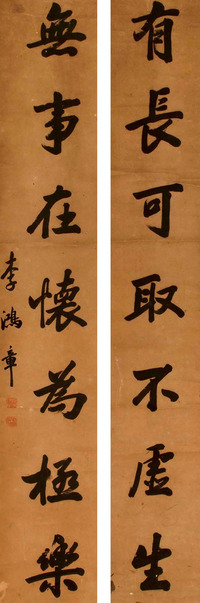 有長可取不虛生
無事在懷為極樂
李鴻章